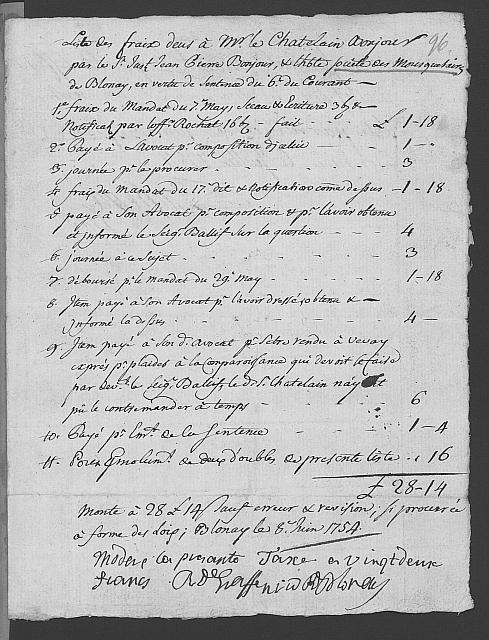 96.
Liste des fraix deus à Mr. le Chatelain Bonjour
par le Sr. Just. Jean Pierre Bonjour, & L'hble. Société des Mousquetaires
de Blonay, en vertu de Sentence du 6e. du Courant
1o. fraix du Mandat du 7. May, Sceau & Ecriture 3 bz &
Notificat. par l'off. Rochat 16 bz fait £ 1-18
2. Payé à L'avocat pr. composition d'icelui 1 -
3. journée pr. le procurer 3
4. frais du Mandat du 17. dit & notification come dessus 1-18
5. payé à Son Avocat pr. composition & pr. l'avoir obtenu
et informé le Seigr. Ballif sur la question 4
6. journée à ce Sujet 3
7. déboursé pr. le mandat du 29. May 1-18
8. Item payé à Son Avocat pr. l'avoir dressé, obtenu &
Informé la dessus 4 -
9. Item payé à Son d. avocat pr. S'etre rendu à Vevay
exprés pr. plaider à la Comparoissance qui devoit se faire
par devt. le Seigr. Ballif, le d. Sr. Chatelain n'ayant
pû le contremander à temps 6
10. Payé pr. Emt. de la Sentence 1-4
11. Pour Emolumt. de deux doubles de presente liste 16
£ 28-14
Monte à 28 £ 14 s sauf erreur & revision; si procurée
à forme des loix; Blonay le 8e. Juin 1754.
Modere la presente Taxe en vingt deux
francs